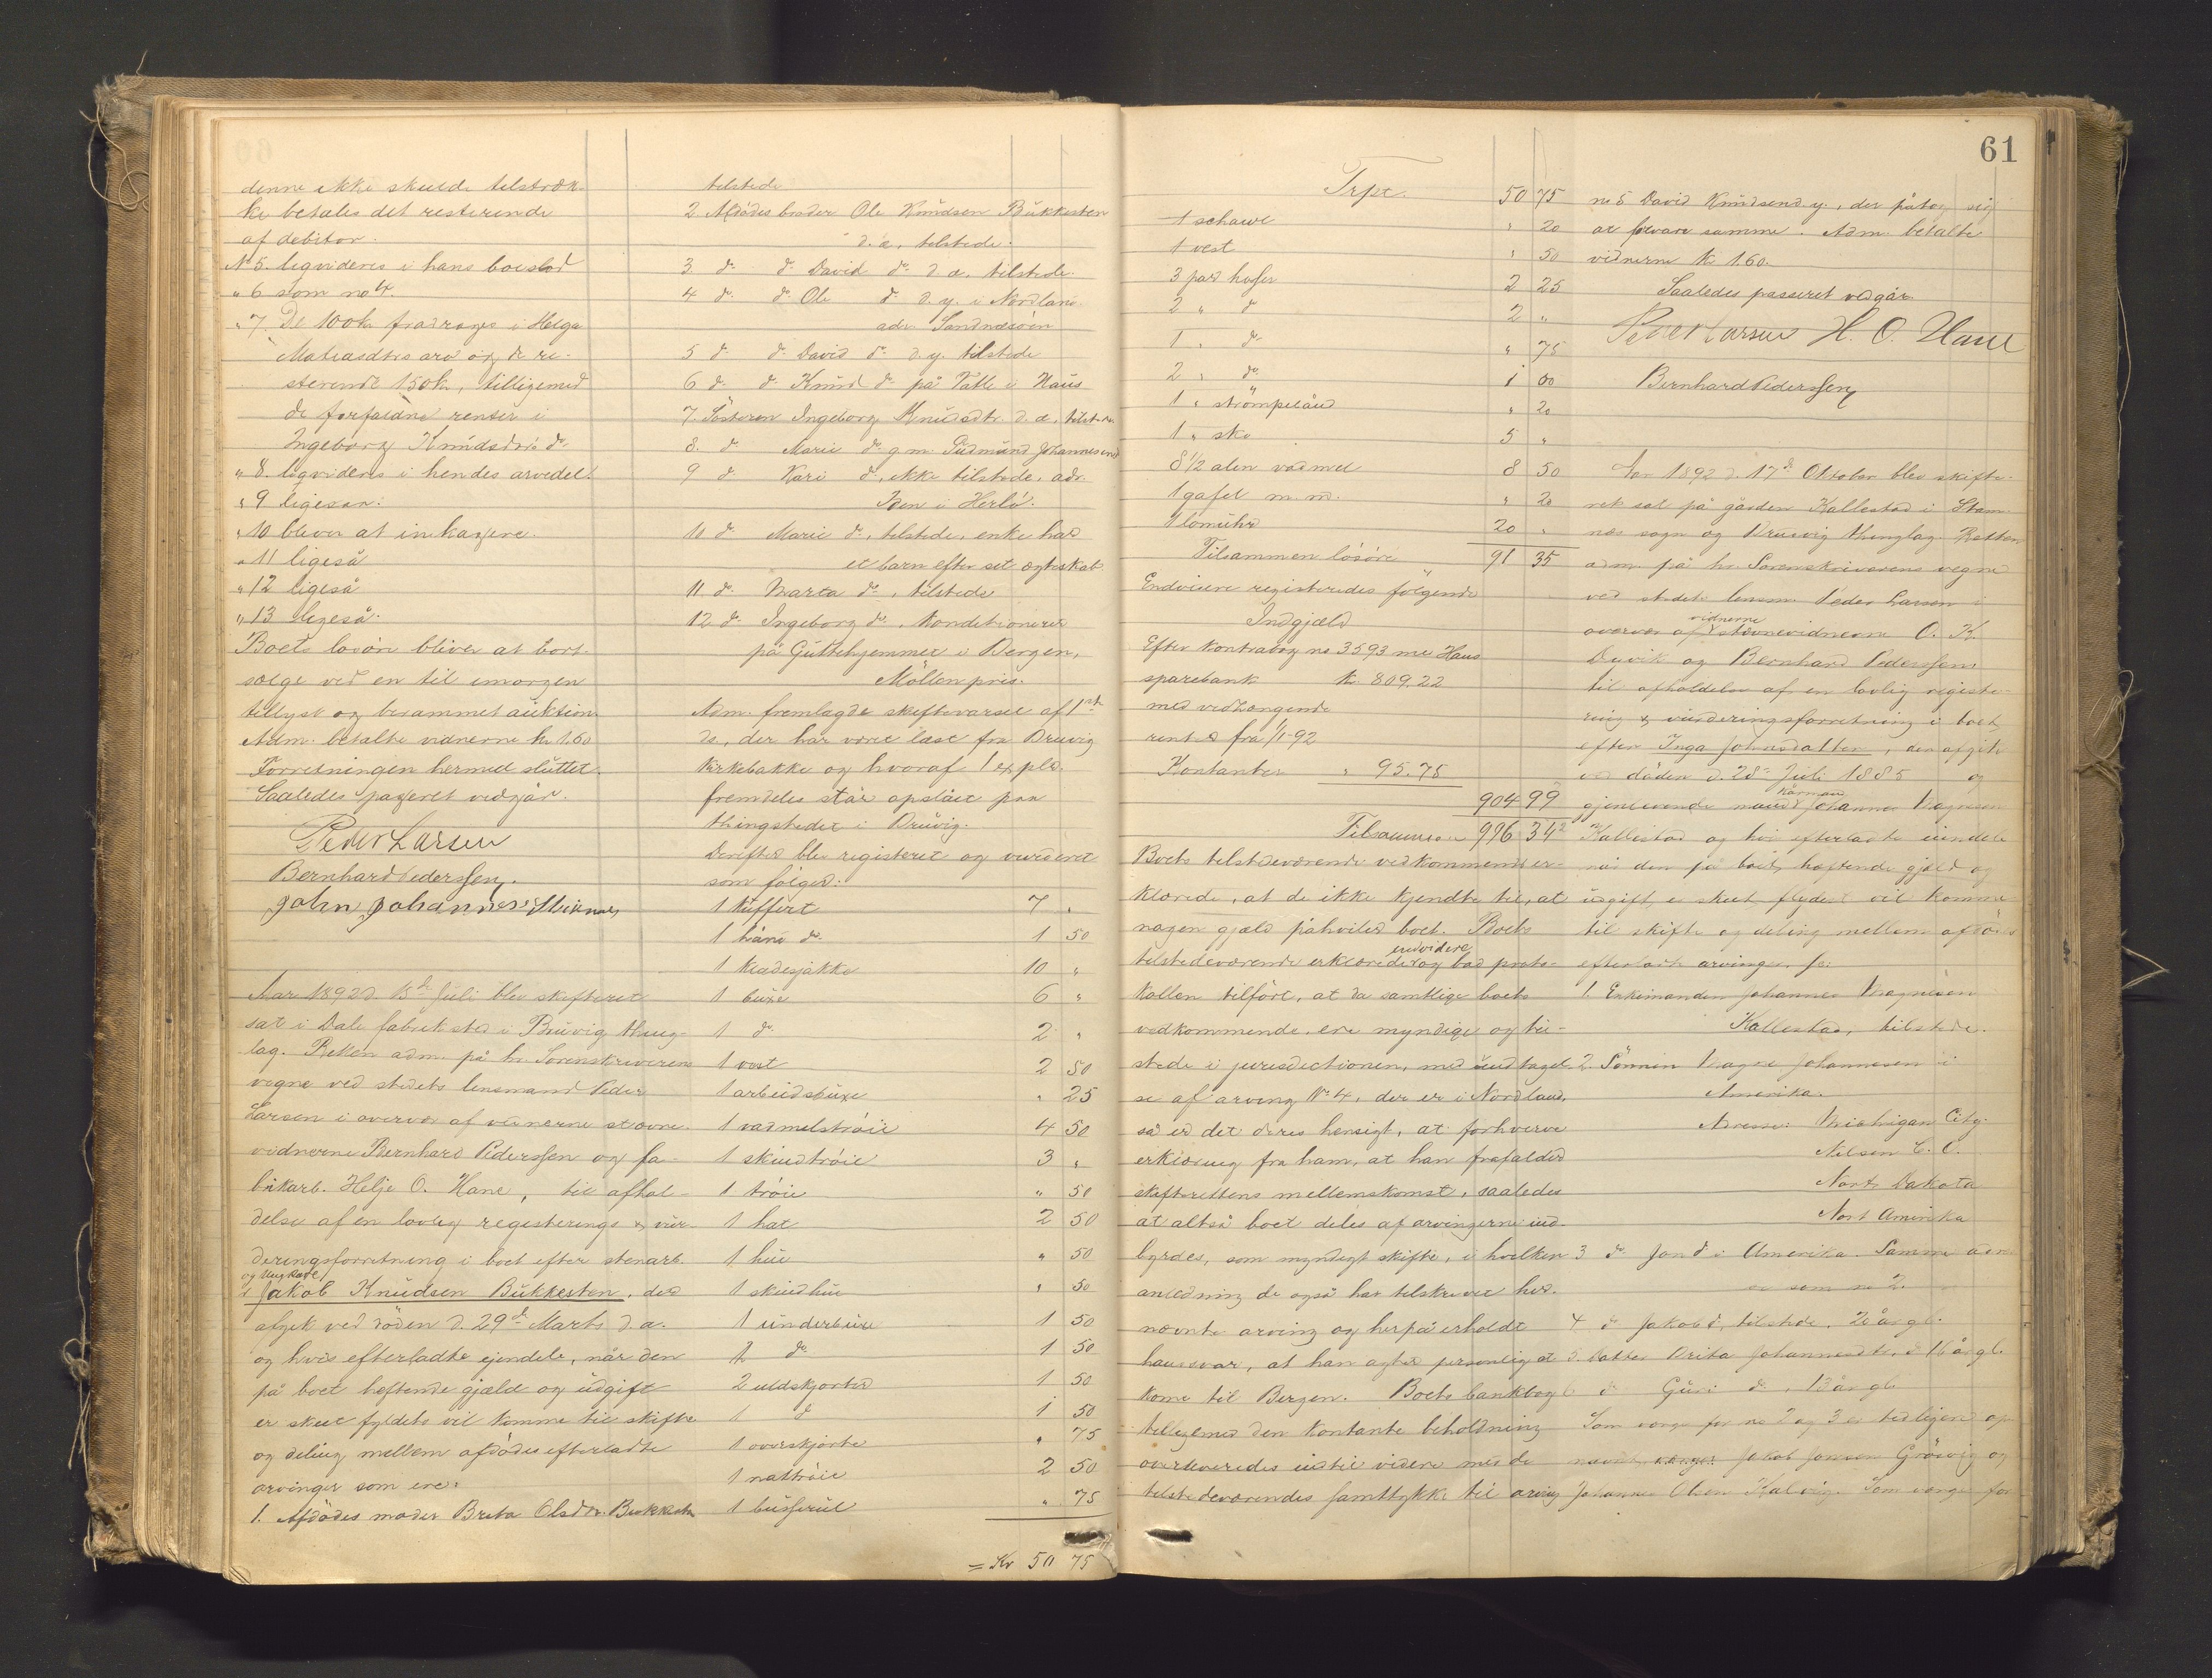 denne ikke skulde tilstræk-
ke betales det resterende
af debitor.
No 5. ligvideres i hans boeslod
" 6 som no 4.
" 7. De 100 kr fradrages i Helga
Matiasdtrs arv og de re-
sterende 150 kr, tilligemed
de forfaldne renter i
Ingeborg Knudsdtrs do
" 8. ligvideres i hendes arvedel.
" 9 ligesaa.
" 10 bliver at inkassere.
" 11 ligeså
" 12 ligeså
" 13 ligeså.
Boets løsøre bliver at bort-
sælge ved en til imorgen
tillyst og berammet auktion.
Adm. betalte vidnerne kr 1.60
Forretningen hermed sluttet.
Saaledes passeret vedgår.
Peder Larsen
Bernhard Pederssen.
John Johannes
Aar 1892 d. 15de Juli blev skifteret
sat i Dale fabriksted i Bruvig thing-
lag. Retten adm. på hr. Sorenskriverens
vegne ved stedets lensmand Peder
Larsen i overvær af vidnerne stævne-
vidnerne Bernhard Pederssen og fa-
brikarb. Helje O. Hane, til afhol-
delse af en lovlig registerings & vur-
deringsforretning i boet efter stenarb.
og ungkarl
Jakob Knudsen Bukkesten, der
afgik ved døden d. 29de Marts d. a.
og hvis efterladte ejendele, når den
på boet heftende gjæld og udgift
er skeet fyldets vil komme til skifte
og deling mellem afdødes efterladte
arvinger som ere:
1. Afdødes moder Breta Olsdtr. Bukkesten
tilstede
2. Afdødes broder Ole Knudsen Bukkesten
d. æ. tilstede.
3 do do David do d. æ. tilstede.
4 do do Ole do d. y. i Nordland
adr. Sandnesøen
5 do do David do d. y. tilstede
6 do do Knud do på Tatle i Haus
7. Søsteren Ingeborg Knudsdtr. d. æ. tilstede
8. do Marie do g. m. Gudmund Johannesen
9 do Kari do, ikke tilstede, adr.
i Herlø.
10 do Marie do, tilstede, enke har
et barn efter sit ægteskab.
11 do Marta do, tilstede
12 do Ingeborg do, konditionerer
på Guttehjemmet i Bergen,
Møllenpris.
Adm. fremlagde skiftevarsel af 1ste
ds, der har været læst fra Bruvig
kirkebakke og hvoraf 1 expl.
fremdeles står opslået paa
thingstedet i Bruvig.
Derefter blev registeret og vurderet
som følger:
1 kuffert 7 "
1 do 1 50
1 klædesjakke 10 "
1 buxe 6 "
1 do 2 "
1 vest 2 50
1 arbeidsbuxe " 25
1 vadmelstrøie 4 50
1 skindtrøie 3 "
1 trøie " 50
1 hat 2 50
1 hue " 50
1 skindhue " 50
1 underbuxe 1 50
1 do 1 50
2 uldskjorter 1 50
1 do 1 50
1 overskjorte " 75
1 nattrøie 2 50
1 busserul " 75
= Kr 50 75
61
Trpt. 50 75
1 schawl " 20
1 vest " 50
3 par hoser 2 25
2 " do 2 "
1 " do " 75
2 " do 1 00
1 " strømpe " 20
1 " sko 5 "
8 1/2 alen vadmel 8 50
1 gafel m. m. " 20
1 lomuhr 20 "
Tilsammen løsøre 91 35
Endvidere registeredes følgende
Indgjæld
Efter kontrabog no 3593 med Haus
sparebank kr. 809.22
med vedhængende
renter fra 1/1-92
Kontanter " 95.75
904 99
Tilsammen 996 34
Boets tilstedeværende vedkommende er-
klærede, at de ikke kjendte til, at
nogen gjæld påhviler boet. Boets
endvidere
tilstedeværende erklærede og bad proto-
kollen tilført, at da samtlige boets
vedkommende ere myndige og til-
stede i jurisdictionen, med undtagel-
se af arving No 4, der er i Nordland,
så er det deres hensigt, at forhverve
erklæring fra ham, at han frafalder
skifterettens mellemkomst, saaledes
at altså boet deles af arvingerne ind-
byrdes, som myndigt skifte, i hvilken
anledning de også har tilskrevet her-
nævnte arving og herpå erholdt
hans svar, at han agter personlig at
kome til Bergen. Boets bankbog
tilligemed den kontante beholdning
overleveredes indtil videre med de
tilstedeværendes samtykke til arving
no 5 David Knudsen d. y., der påtog sig
at forvare samme. Adm. betalte
vidnerne kr 1.60.
Saaledes passeret vedgår
Peder Larsen H. O. Hane
Bernhard Pederssen
Aar 1892 d. 17de Oktober blev skifte-
ret sat på gården Kallestad i Stam-
nes sogn og Bruvig thinglag. Retten
adm. på hr. Sorenskriverens vegne
ved stedets lensm. Peder Larsen i
vidnerne
overvær af stævnevidnerne O. K.
Duvik og Bernhard Pederssen
til afholdelse af en lovlig registe-
ring & vurderingsforretning i boet
efter Inga Johnsdatter, der afgik
ved døden d. 28de Juli 1885 og
kårman
gjenlevende mand Johannes Magnesen
Kallestad og hvis efterladte eiendele
når den på boet heftende gjæld og
udgift, er skeet fyldest vil komme
til skifte og deling mellem afdødes
efterladte arvinger, so:
1. Enkemanden Johannes Magnesen
Kallestad, tilstede.
2. Sønnen Magne Johannesen i
Amerika.
Adresse: Michigan City
Nelson C. O.
Nort Dakota
Nort Amerika
3 do Jon do i Amerika. Samme adr.
som no 2.
4 do Jakob do, tilstede, 20 år gl.
5. Datter Brita Johannesdtr, 16 år gl.
6 do Guri do, 13 år gl.
Som værge for no 2 og 3 er tidligere op-
nævnt Jakob Jonsen Grøsvig og
Johannes Olsen Kalvig. Som værge for